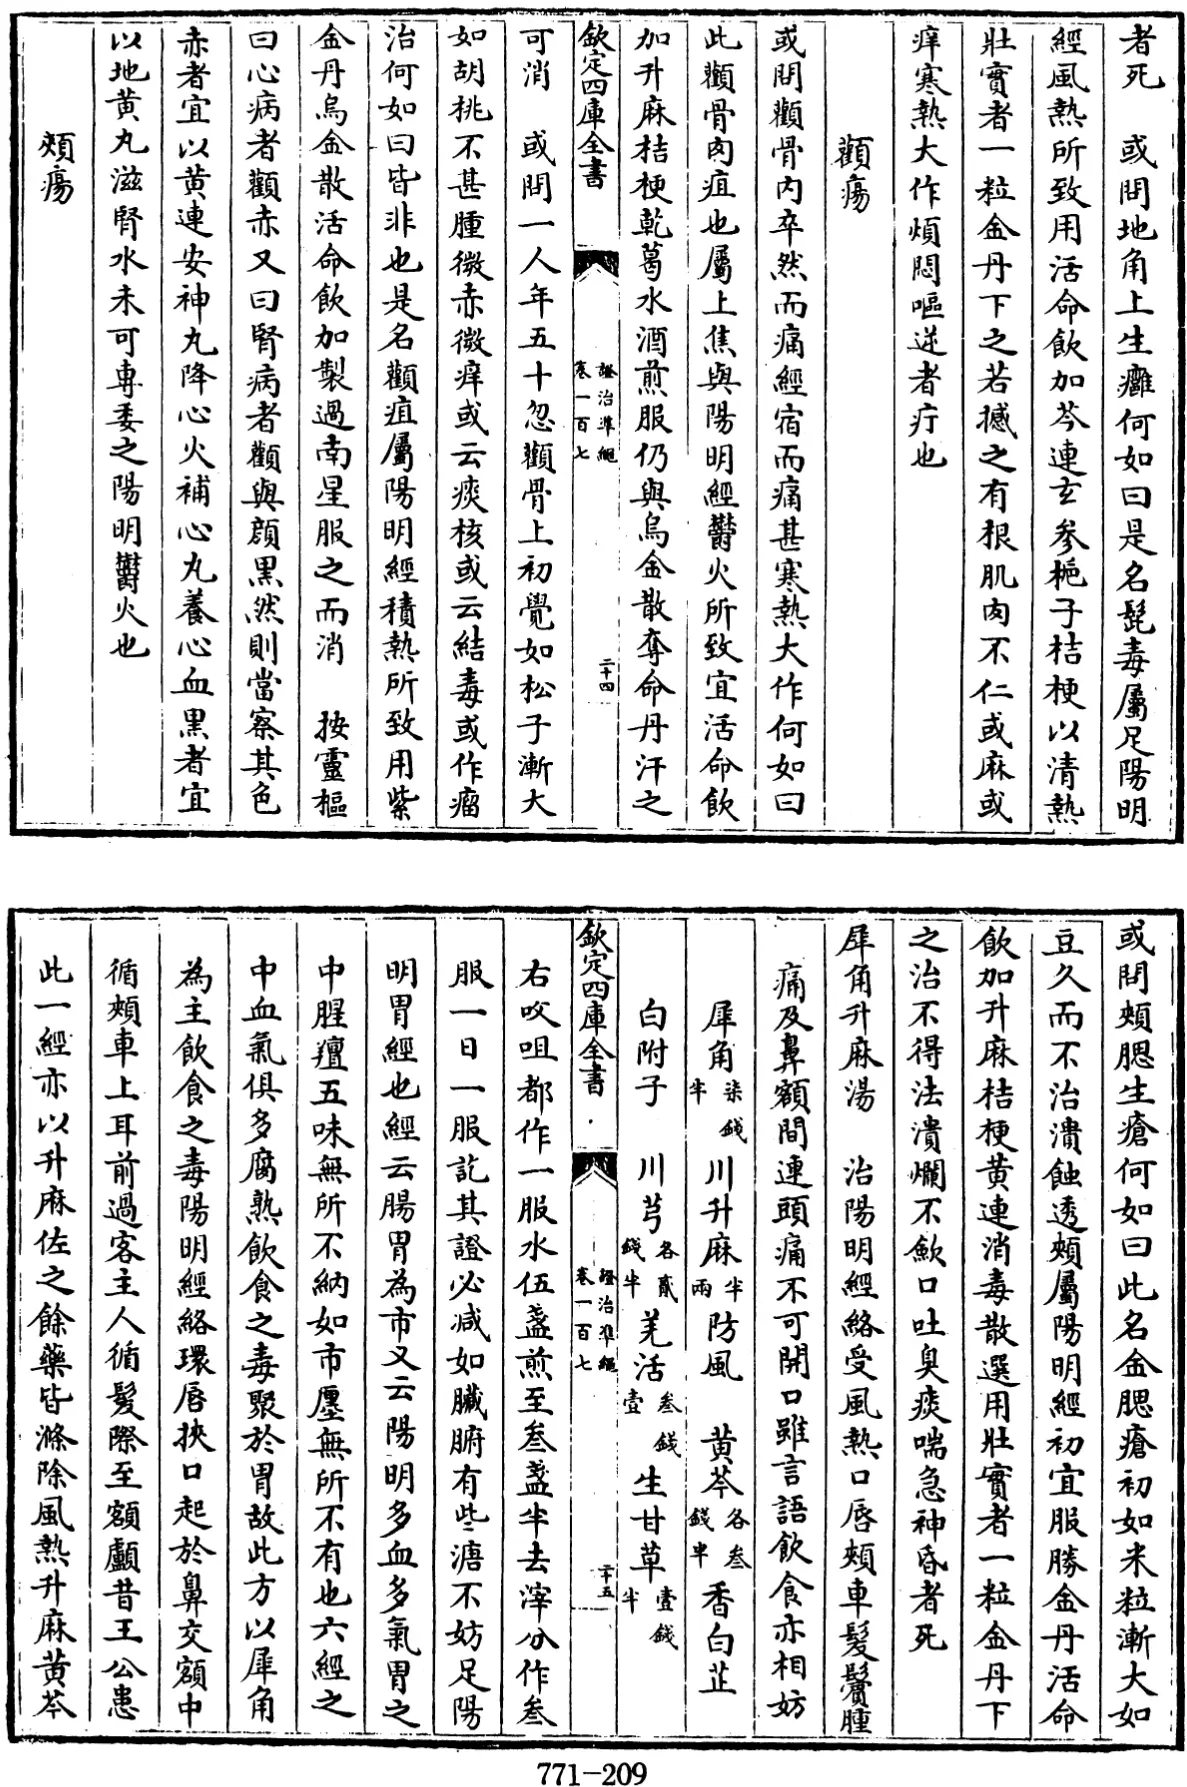 者死　或問地角上生癰何如曰是名髭毒屬足陽明
經風熱所致用活命飲加芩連玄參梔子桔梗以清熱
壯實者一粒金丹下之若撼之有根肌肉不仁或麻或
痒寒熱大作煩悶嘔逆者疔也
顴瘍
或問顴骨內卒然而痛經宿而痛甚寒熱大作何如曰
此顴骨肉疽也屬上焦與陽明經鬱火所致宜活命飲
加升麻桔梗乾葛水酒煎服仍與烏金散奪命丹汗之
欽定四庫全書
證治準繩
卷一百七
二十四
可消　或問一人年五十忽顴骨上初覺如松子漸大
如胡桃不甚腫微赤微痒或云痰核或云結毒或作瘤
治何如曰皆非也是名顴疽屬陽明經積熱所致用紫
金丹烏金散活命飲加製過南星服之而消　按靈樞
曰心病者顴赤又曰腎病者顴與顔黒然則當察其色
赤者宜以黄連安神丸降心火補心丸養心血黒者宜
以地黄丸滋腎水未可専委之陽明鬱火也
頰瘍
或問頰腮生瘡何如曰此名金腮瘡初如米粒漸大如
豆久而不治潰蝕透頰屬陽明經初宜服勝金丹活命
飲加升麻桔梗黄連消毒散選用壯實者一粒金丹下
之治不得法潰爛不歛口吐臭痰喘急神昏者死
犀角升麻湯　治陽明經絡受風熱口唇頰車髮鬢腫
痛及鼻額間連頭痛不可開口雖言語飲食亦相妨
犀角柒錢半　川升麻半兩　防風　黄芩各叁錢半　香白芷
白附子　川芎各貳錢半　羌活叁錢壹　生甘草壹錢半
欽定四庫全書
證治準繩
卷一百七
二十五
右㕮咀都作一服水伍盞煎至叁盞半去滓分作叁
服一日一服訖其證必減如臟腑有些溏不妨足陽
明胃經也經云腸胃為市又云陽明多血多氣胃之
中腥羶五味無所不納如市廛無所不有也六經之
中血氣俱多腐熟飲食之毒聚於胃故此方以犀角
為主飲食之毒陽明經絡環唇挾口起於鼻交額中
循頰車上耳前過客主人循髮際至額顱昔王公患
此一經亦以升麻佐之餘藥皆滌除風熱升麻黄芩
771-209